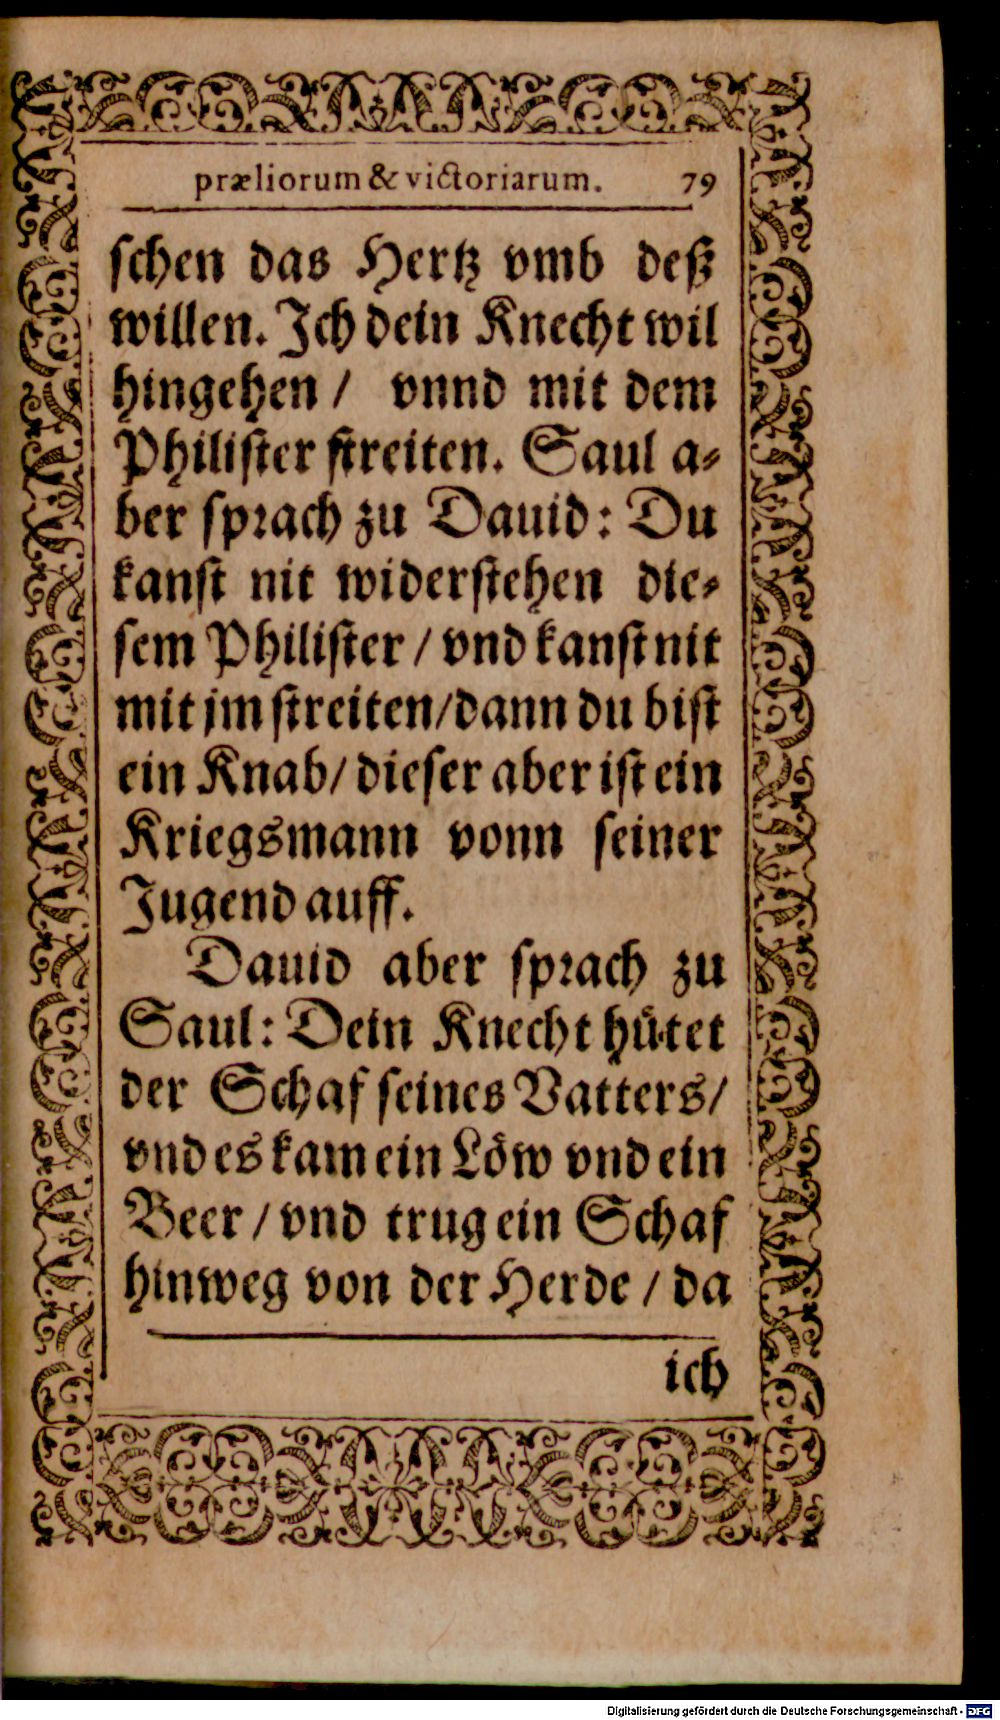 præliorum & victoriarum. 79
schen das Hertz vmb deß
willen. Ich dein Knecht wil
hingehen / vnnd mit dem
Philister streiten. Saul a-
ber sprach zu Dauid: Du
kanst nit widerstehen die-
sem Philister / vnd kanst nit
mit jm streiten/dann du bist
ein Knab/ dieser aber ist ein
Kriegsmann vonn seiner
Jugend auff.
Dauid aber sprach zu
Saul: Dein Knecht hütet
der Schaf seines Vatters/
vnd es kam ein Löw vnd ein
Beer / vnd trug ein Schaf
hinweg von der Herde / da
ich
Digitalisierung gefördert durch die Deutsche Forschungsgemeinschaft - DFG